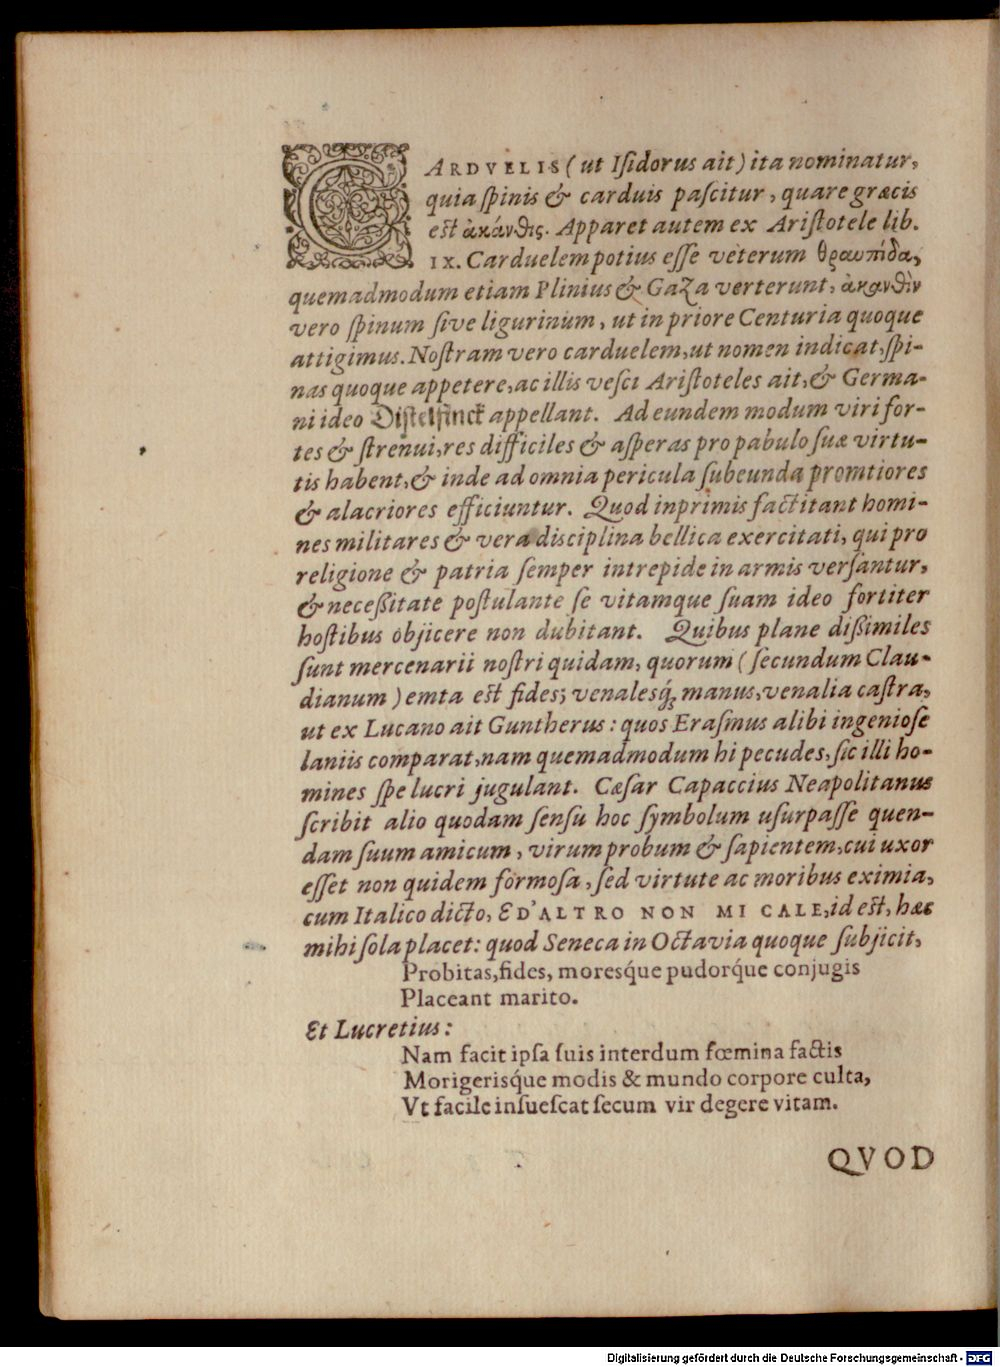 CARDVELIS (ut Iſidorus ait) ita nominatur,
quia ſpinis & carduis paſcitur, quare græcis
est ἀκάνθις. Apparet autem ex Ariſtotele lib.
IX. Carduelem potius eſſe veterum θραυπίδα,
quemadmodum etiam Plinius & Gaza verterunt, ἀκανθὶν
vero ſpinum ſive ligurinum, ut in priore Centuria quoque
attigimus. Noſtram vero carduelem, ut nomen indicat, ſpi-
nas quoque appetere, ac illis veſci Ariſtoteles ait, & Germa-
ni ideo Diſtelfinck appellant. Ad eundem modum viri for-
tes & ſtrenui, res difficiles & aſperas pro pabulo ſuæ virtu-
tis habent, & inde ad omnia pericula ſubeunda promtiores
& alacriores efficiuntur. Quod inprimis factitant homi-
nes militares & vera disciplina bellica exercitati, qui pro
religione & patria ſemper intrepide in armis verſantur,
& neceßitate poſtulante ſe vitamque ſuam ideo fortiter
hoſtibus objicere non dubitant. Quibus plane dißimiles
ſunt mercenarii noſtri quidam, quorum (ſecundum Clau-
dianum) emta est fides; venalesq́; manus, venalia caſtra,
ut ex Lucano ait Guntherus: quos Eraſmus alibi ingenioſe
laniis comparat, nam quemadmodum hi pecudes, ſic illi ho-
mines ſpe lucri jugulant. Cæſar Capaccius Neapolitanus
ſcribit alio quodam ſenſu hoc ſymbolum uſurpaſſe quen-
dam ſuum amicum, virum probum & ſapientem, cui uxor
eſſet non quidem formoſa, ſed virtute ac moribus eximia,
cum Italico dicto, ED'ALTRO NON MI CALE, id est, hæc
mihi ſola placet: quod Seneca in Octavia quoque ſubjicit,
Probitas, fides, moresq́ue pudorq́ue conjugis
Placeant marito.
Et Lucretius:
Nam facit ipſa ſuis interdum fœmina factis
Morigerisq́ue modis & mundo corpore culta,
Vt facile inſueſcat ſecum vir degere vitam.
QVOD
Digitalisierung gefördert durch die Deutsche Forschungsgemeinschaft - DFG